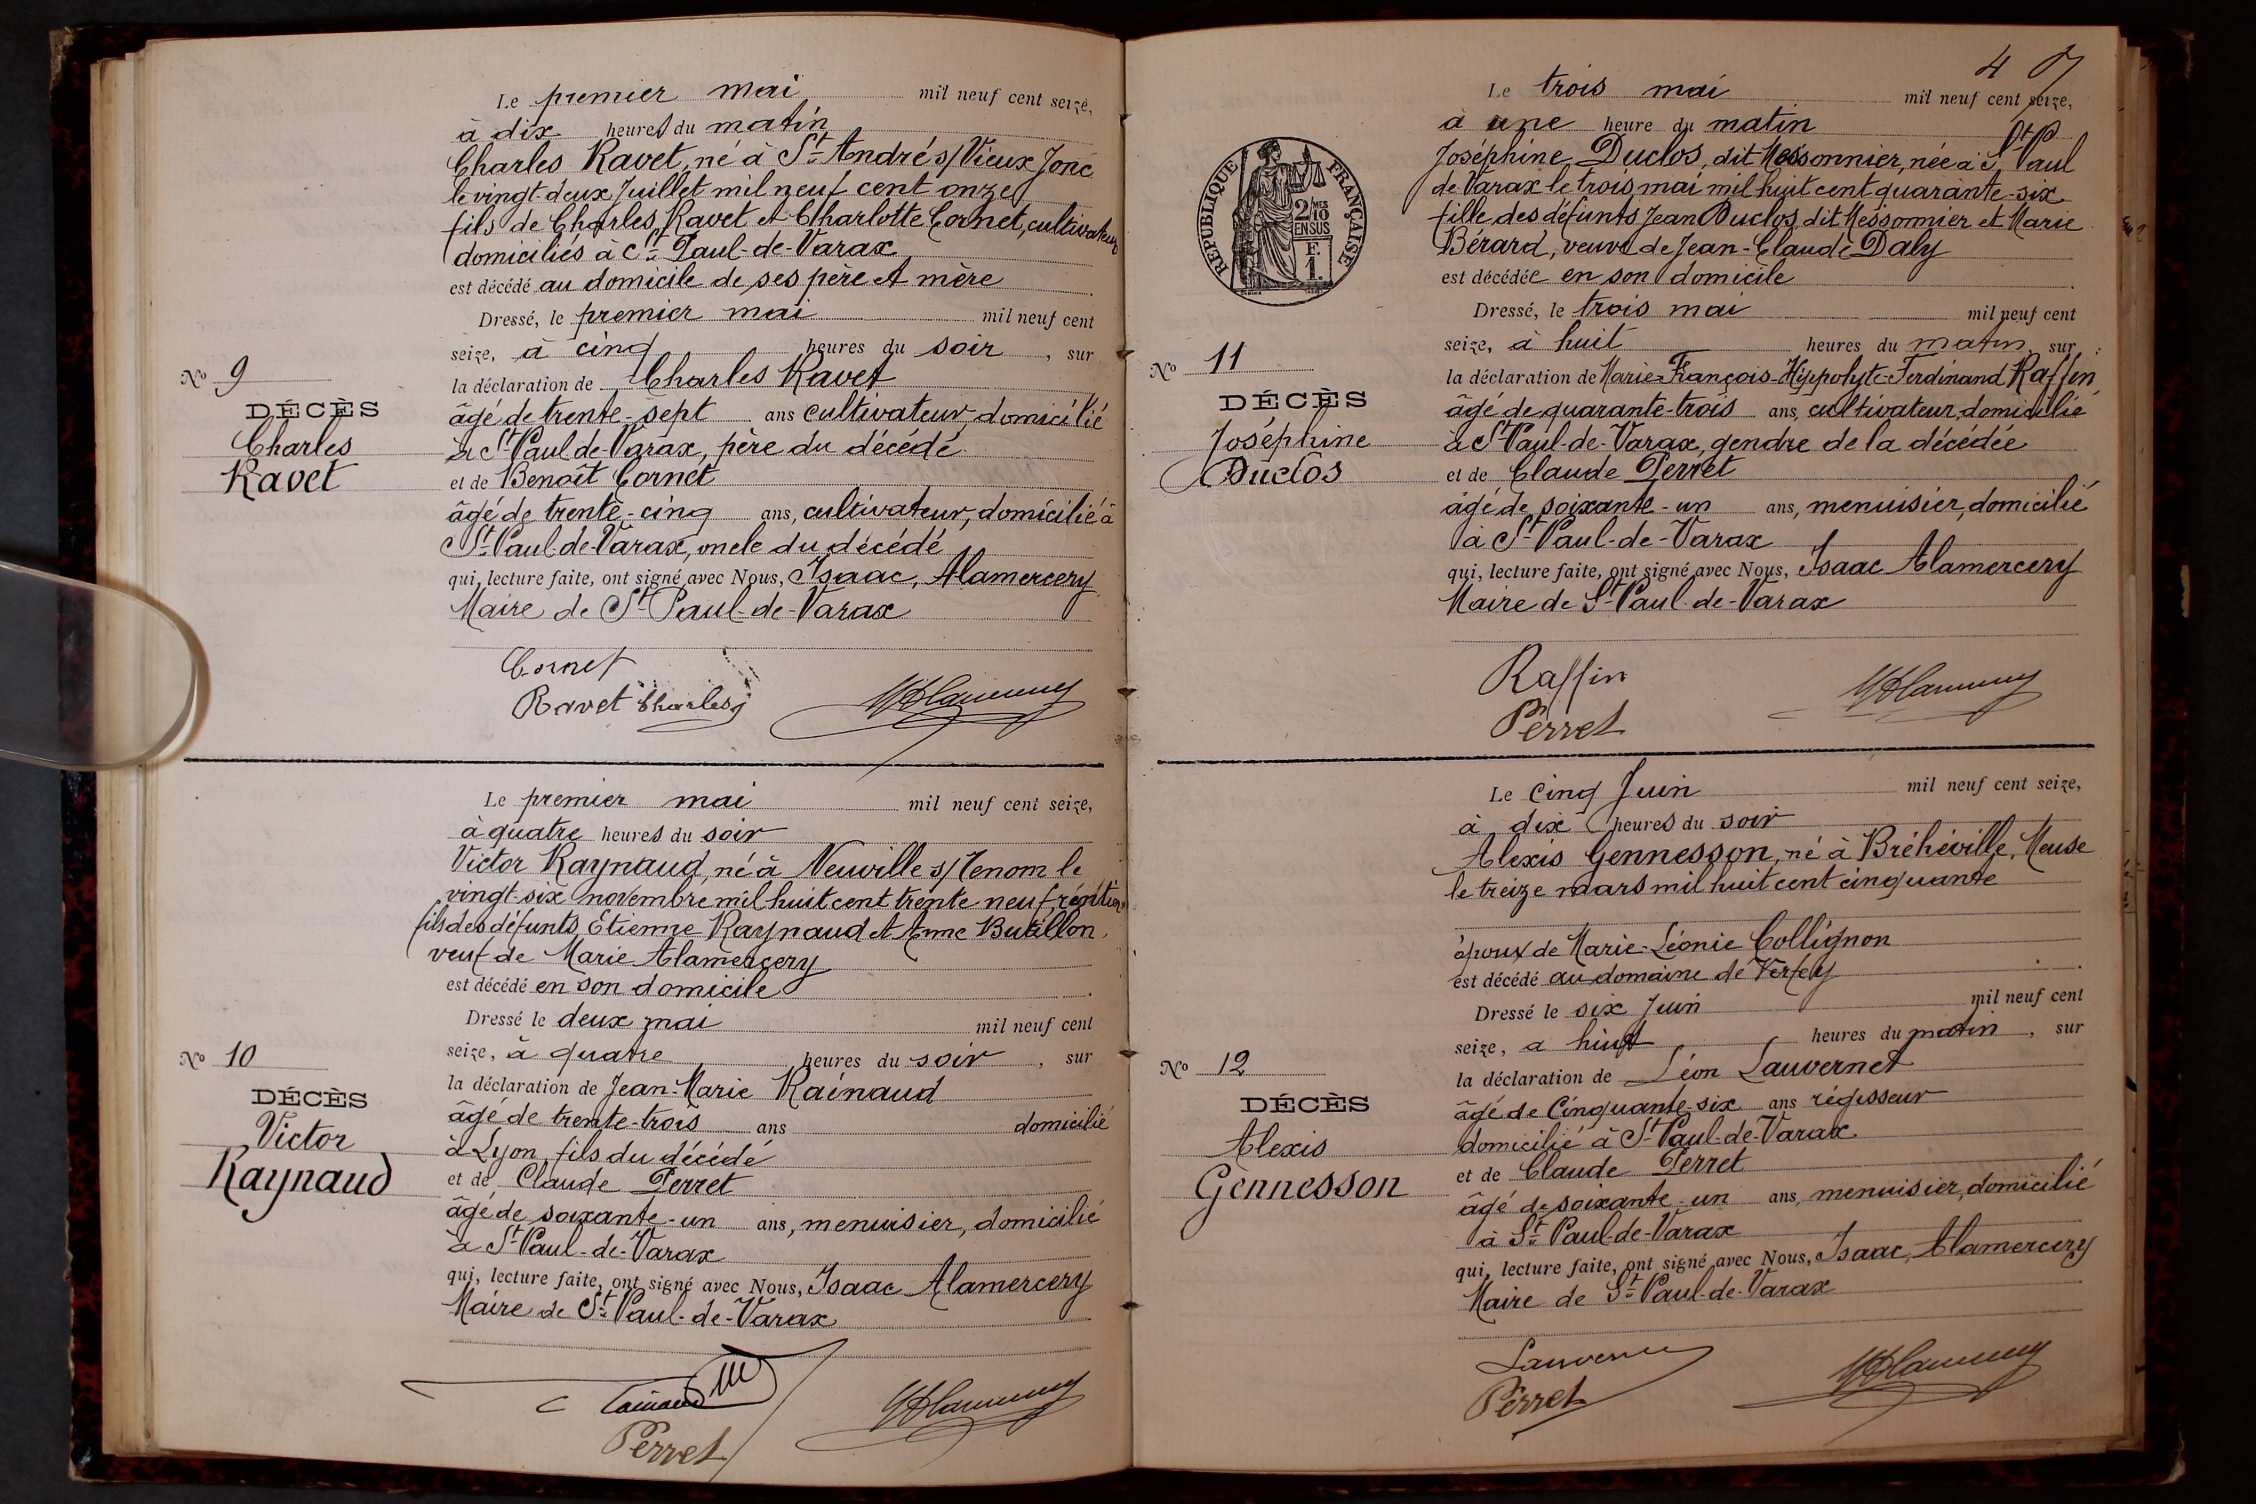 Le premier mai mil neuf cent seize,
à dix heures du matin
Charles Ravet, né à St André s/ Vieux Jonc
le vingt-deux Juillet mil neuf cent onze
fils de Charles Ravet et Charlotte Cornet, cultivateurs
domiciliés à St Paul-de-Varax
est décédé au domicile de ses père et mère
Dressé, le premier mai mil neuf cent
seize, à cinq heures du soir, sur
No 9
la déclaration de Charles Ravet
DÉCÈS
âgé de trente-sept ans cultivateur domicilié
Charles
à St Paul de Varax, père du décédé
Ravet
et de Benoît Cornet
âgé de trente-cinq ans, cultivateur, domicilié à
St Paul de Varax, oncle du décédé
qui, lecture faite, ont signé avec Nous, Isaac, Alamercery
Maire de St Paul-de-Varax
Cornet
Ravet Charles
Le premier mai mil neuf cent seize,
à quatre heures du soir
Victor Raynaud, né à Neuville s/ Renom le
vingt-six novembre mil huit cent trente neuf, rentier
fils des défunts Etienne Raynaud et Anne Butillon,
veuf de Marie Alamercery
est décédé en son domicile
Dressé le deux mai mil neuf cent
seize, à quatre heures du soir, sur
No 10
la déclaration de Jean-Marie Rainaud
DÉCÈS
âgé de trente-trois ans domicilié
Victor
à Lyon, fils du décédé
Raynaud
et de Claude Perret
âgé de soixante-un ans, menuisier, domicilié
à St Paul-de-Varax
qui, lecture faite, ont signé avec Nous, Isaac Alamercery
Maire de St Paul-de-Varax
Rainaud
Perret
47
Le trois mai mil neuf cent seize,
à une heure du matin
Joséphine Duclos, dit Messonnier, née à St Paul
de Varax le trois mai mil huit cent quarante-six
fille des défunts Jean Duclos dit Messonnier et Marie
Bérard, veuve de Jean-Claude Daly
est décédée en son domicile
RÉPUBLIQUE FRANÇAISE
2/10 MES
EN SUS
F.
1.
Dressé, le trois mai mil neuf cent
seize, à huit heures du matin, sur
No 11
la déclaration de Marie-François-Hyppolyte-Ferdinand Raffin
DÉCÈS
âgé de quarante-trois ans, cultivateur, domicilié
Joséphine
à St Paul-de-Varax, gendre de la décédée
Duclos
et de Claude Perret
âgé de soixante-un ans, menuisier, domicilié
à St Paul-de-Varax
qui, lecture faite, ont signé avec Nous, Isaac Alamercery
Maire de St Paul-de-Varax
Raffin
Perret
Le Cinq Juin mil neuf cent seize,
à dix heures du soir
Alexis Gennesson, né à Bréhéville, Meuse
le treize mars mil huit cent cinquante
époux de Marie-Léonie Collignon
est décédé au domaine de Verfey
Dressé le six Juin mil neuf cent
seize, a huit heures du matin, sur
No 12
la déclaration de Léon Lauvernet
DÉCÈS
âgé de Cinquante-six ans régisseur
Alexis
domicilié à St Paul-de-Varax
Gennesson
et de Claude Perret
âgé de soixante-un ans, menuisier, domicilié
à St Paul-de-Varax
qui, lecture faite, ont signé avec Nous, Isaac, Alamercery
Maire de St Paul-de-Varax
Lauvernet
Perret